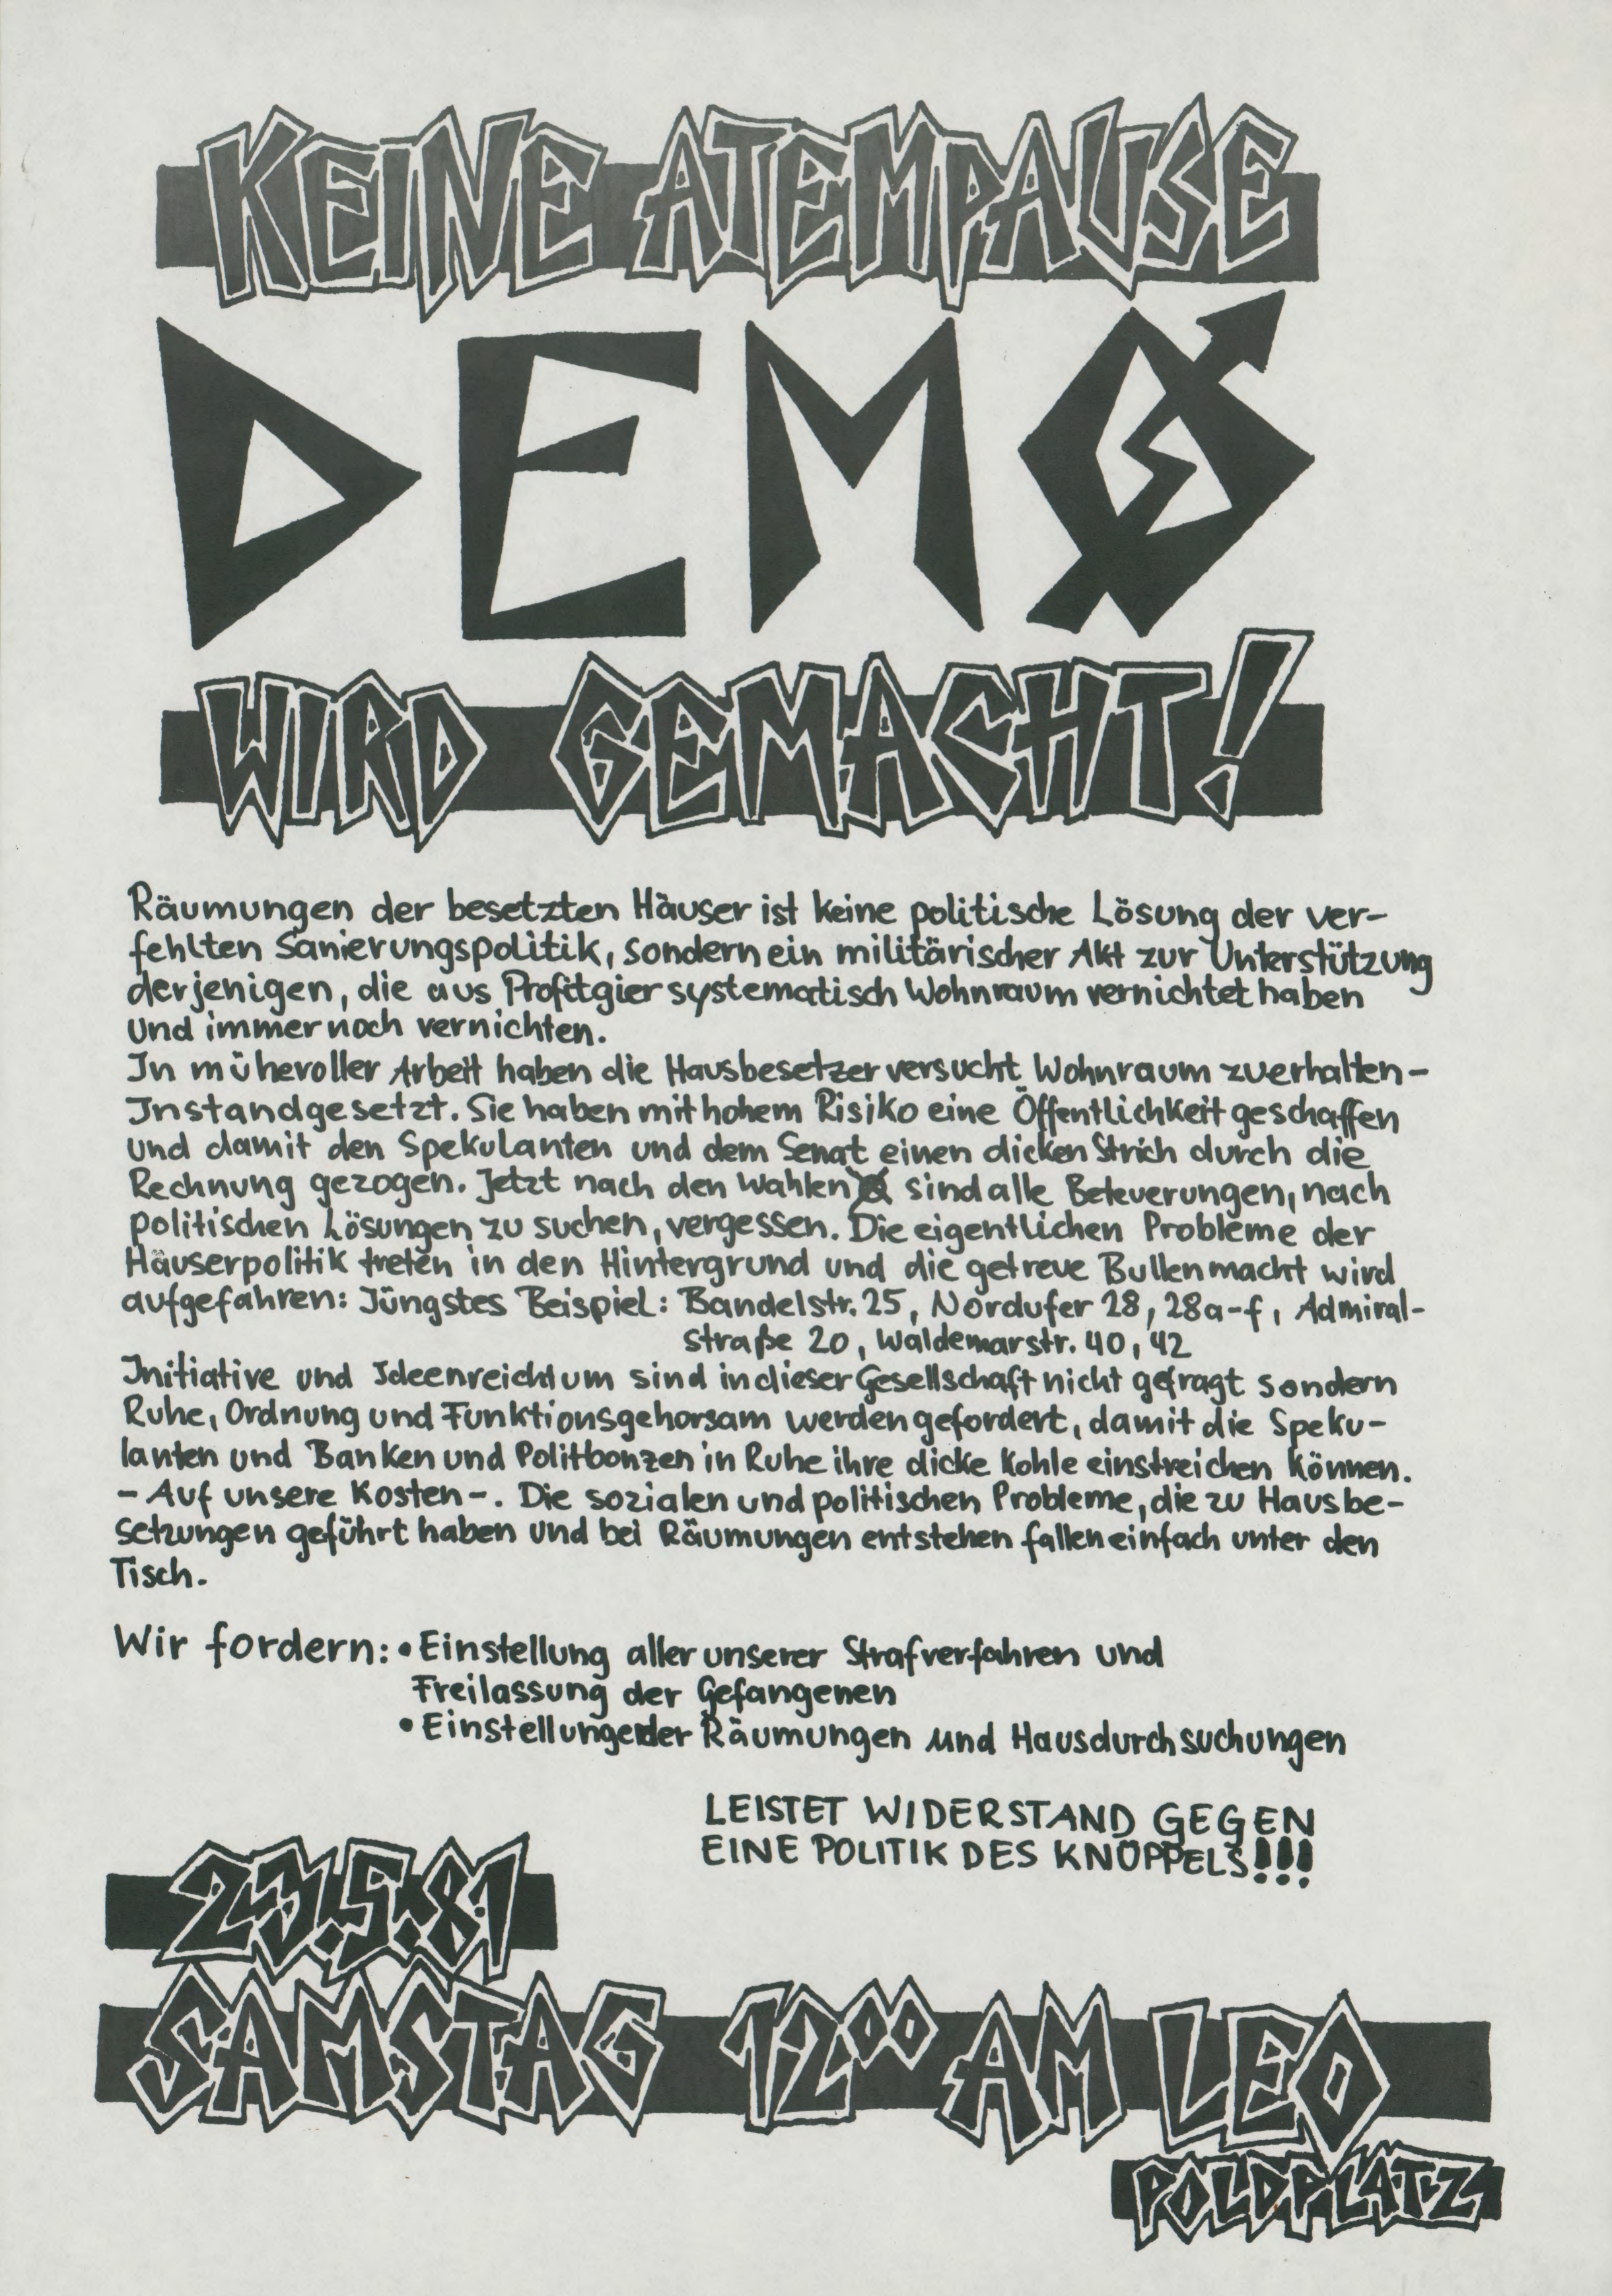 KEINE ATEMPAUSE
DEMO
WIRD GEMACHT!
Räumungen der besetzten Häuser ist keine politische Lösung der ver-
fehlten Sanierungspolitik, sondern ein militärischer Akt zur Unterstützung
derjenigen, die aus Profitgier systematisch Wohnraum vernichtet haben
und immer noch vernichten.
In mühevoller Arbeit haben die Hausbesetzer versucht Wohnraum zuerhalten-
Instandgesetzt. Sie haben mit hohem Risiko eine Öffentlichkeit geschaffen
und damit den Spekulanten und dem Senat einen dicken Strich durch die
Rechnung gezogen. Jetzt nach den Wahlen sind alle Beteuerungen, nach
politischen Lösungen zu suchen, vergessen. Die eigentlichen Probleme der
Häuserpolitik treten in den Hintergrund und die getreue Bullenmacht wird
aufgefahren: Jüngstes Beispiel: Bandelstr. 25, Nordufer 28, 28a-f, Admiral-
straße 20, Waldemarstr. 40, 42
Initiative und Ideenreichtum sind in dieser Gesellschaft nicht gefragt sondern
Ruhe, Ordnung und Funktionsgehorsam werden gefordert, damit die Speku-
lanten und Banken und Politbonzen in Ruhe ihre dicke Kohle einstreichen können.
- Auf unsere Kosten -. Die sozialen und politischen Probleme, die zu Hausbe-
setzungen geführt haben und bei Räumungen entstehen fallen einfach unter den
Tisch.
Wir fordern: • Einstellung aller unserer Strafverfahren und
Freilassung der Gefangenen
• Einstellung der Räumungen und Hausdurchsuchungen
LEISTET WIDERSTAND GEGEN
EINE POLITIK DES KNÜPPELS!!!
23.5.81
SAMSTAG 12⁰⁰ AM LEO
POLDPLATZ